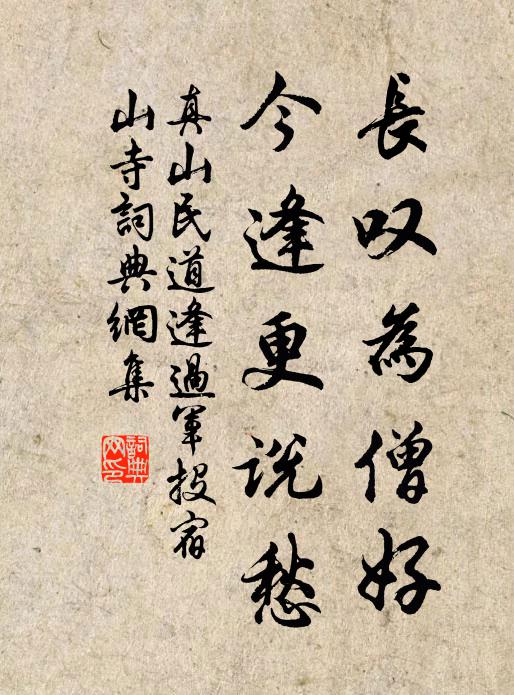 長叹為僧好
今逢更说愁
真山民道逢過軍投宿
山寺詞典網集
詞典
网印